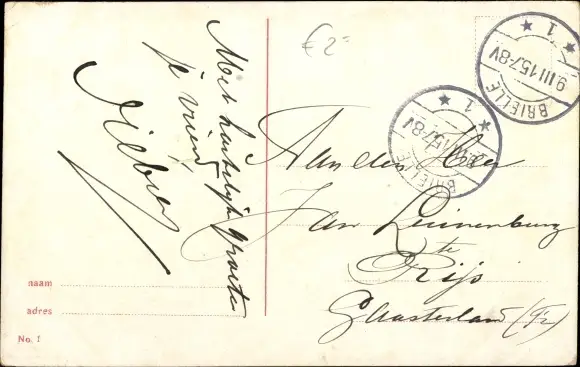 Met hartelijke groeten
je vriend
€ 2=
BRIELLE
9.III.15 7-8V
1
BRIELLE
15 7-8V
1
Aan den Heer
Jan
te
Rijs
Gaasterland (Fr.)
naam
adres
No. 1